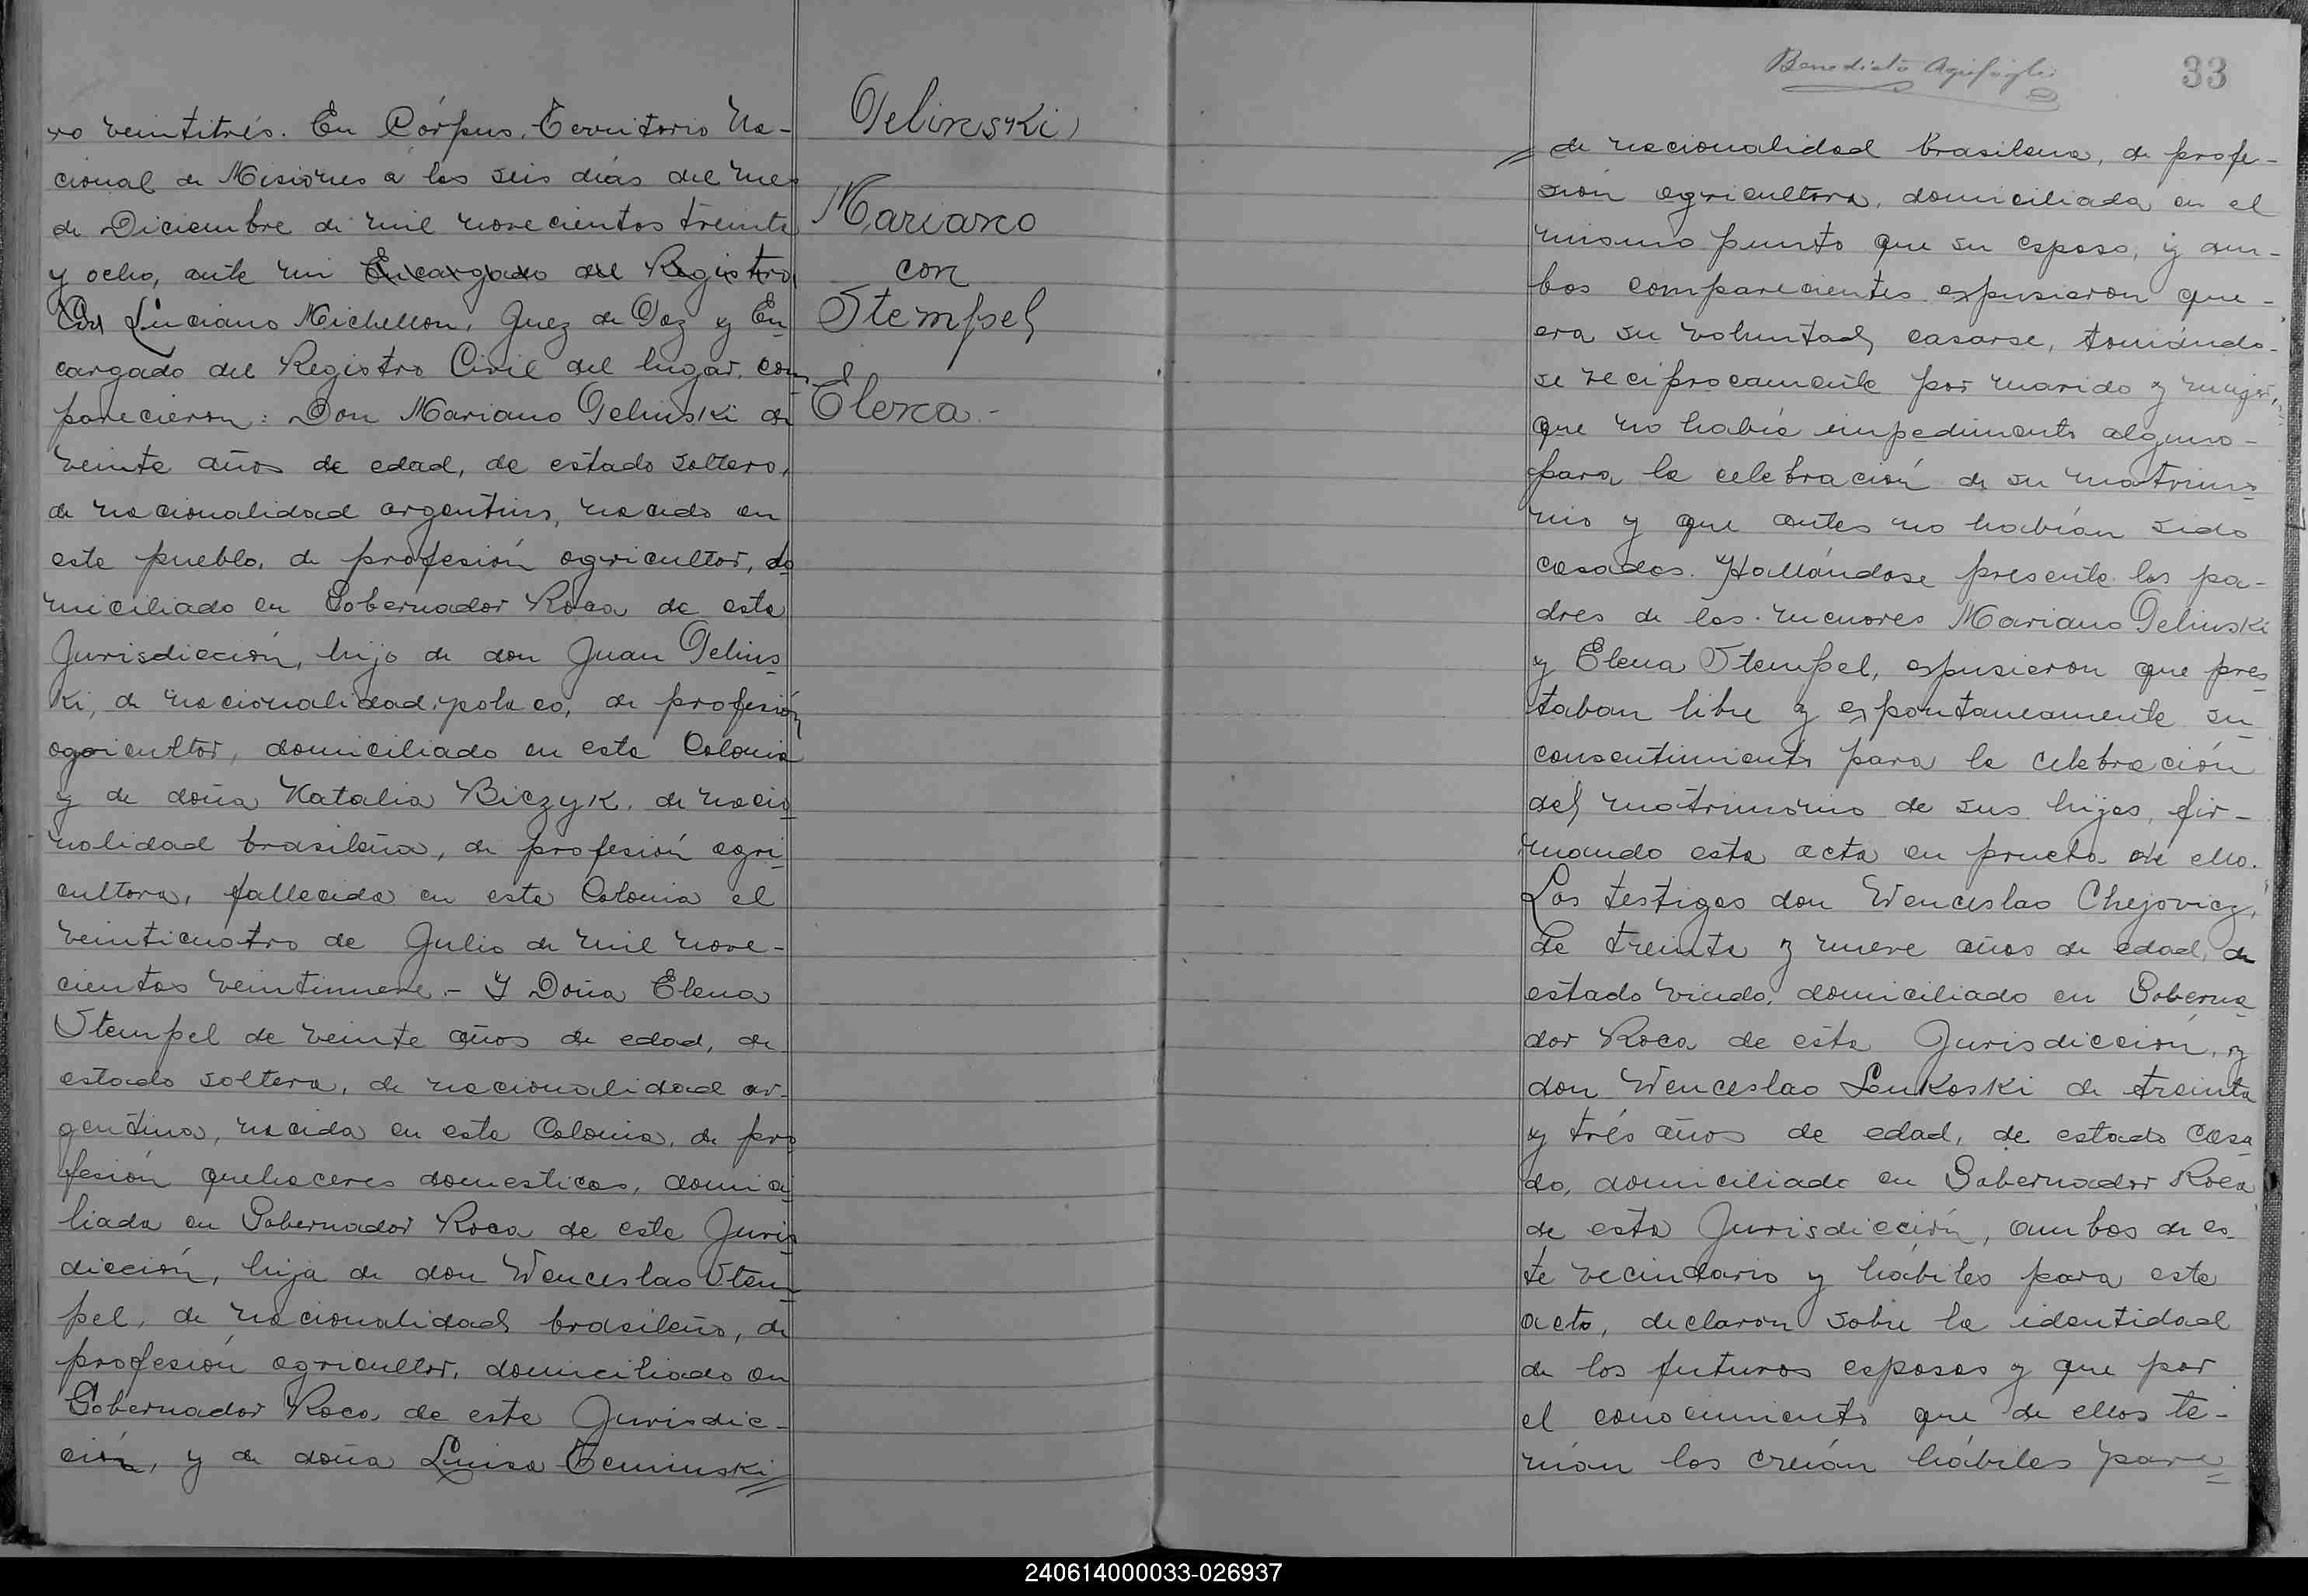 ro veintitrés. En Córpus, Territorio Na-
cional de Misiones a los seis días del mes
de Diciembre de mil novecientos treinta
y ocho, ante mi Encargado del Registro
Luciano Michellon, Juez de Paz y En
cargado del Registro Civil del lugar, com
parecieron: Don Mariano Gelinski de
veinte años de edad, de estado soltero,
de nacionalidad argentino, nacido en
este pueblo, de profesión agricultor, do
miciliado en Gobernador Roca de esta
Jurisdicción, hijo de don Juan Gelins
ki, de nacionalidad polaco, de profesión
agricultor, domiciliado en esta Colonia
y de doña Natalia Biczyk, de nacio
nalidad brasileña, de profesión agri
cultora, fallecida en esta Colonia el
veinticuatro de Julio de mil nove-
cientos veintinueve.- Y Doña Elena
Stempel de veinte años de edad, de
estado soltera, de nacionalidad ar-
gentina, nacida en esta Colonia, de pro
fesión quehaceres domesticos, domici
liada en Gobernador Roca de esta Juris
dicción, hija de don Wenceslao Stem
pel, de nacionalidad brasileño, de
profesión agricultor, domiciliado en
Gobernador Roca de esta Jurisdic-
ción, y de doña Luisa Teminski
Gelinski
Mariano
con
Stempel
Elena.-
Benedicto
33
de nacionalidad brasilena, de profe-
sión agricultora, domiciliada en el
mismo punto que su esposo, y am-
bos comparecientes expusieron que-
era su voluntad casarse, tomándo-
se reciprocamente por marido y mujer,
que no había impedimento alguno-
para la celebración de su matrimo
nio y que antes no habían sido
casados. Hallándose presente los pa-
dres de los menores Mariano Gelinski
y Elena Stempel, expusieron que pres
taban libre y espontaneamente su
consentimiento para la celebración
del matrimonio de sus hijos, fir-
mando esta acta en prueba de ello.
Los testigos don Wenceslao Chejovicz,
de treinta y nueve años de edad, de
estado viudo, domiciliado en Goberna
dor Roca de esta Jurisdicción, y
don Wenceslao Lukoski de treinta
y trés años de edad, de estado casa
do, domiciliado en Gobernador Roca
de esta Jurisdicción, ambos de es-
te vecindario y hábiles para este
acto, declaron sobre la identidad
de los futuros esposos y que por
el conocimiento que de ellos te-
nían los creían hábiles para
240614000033-026937